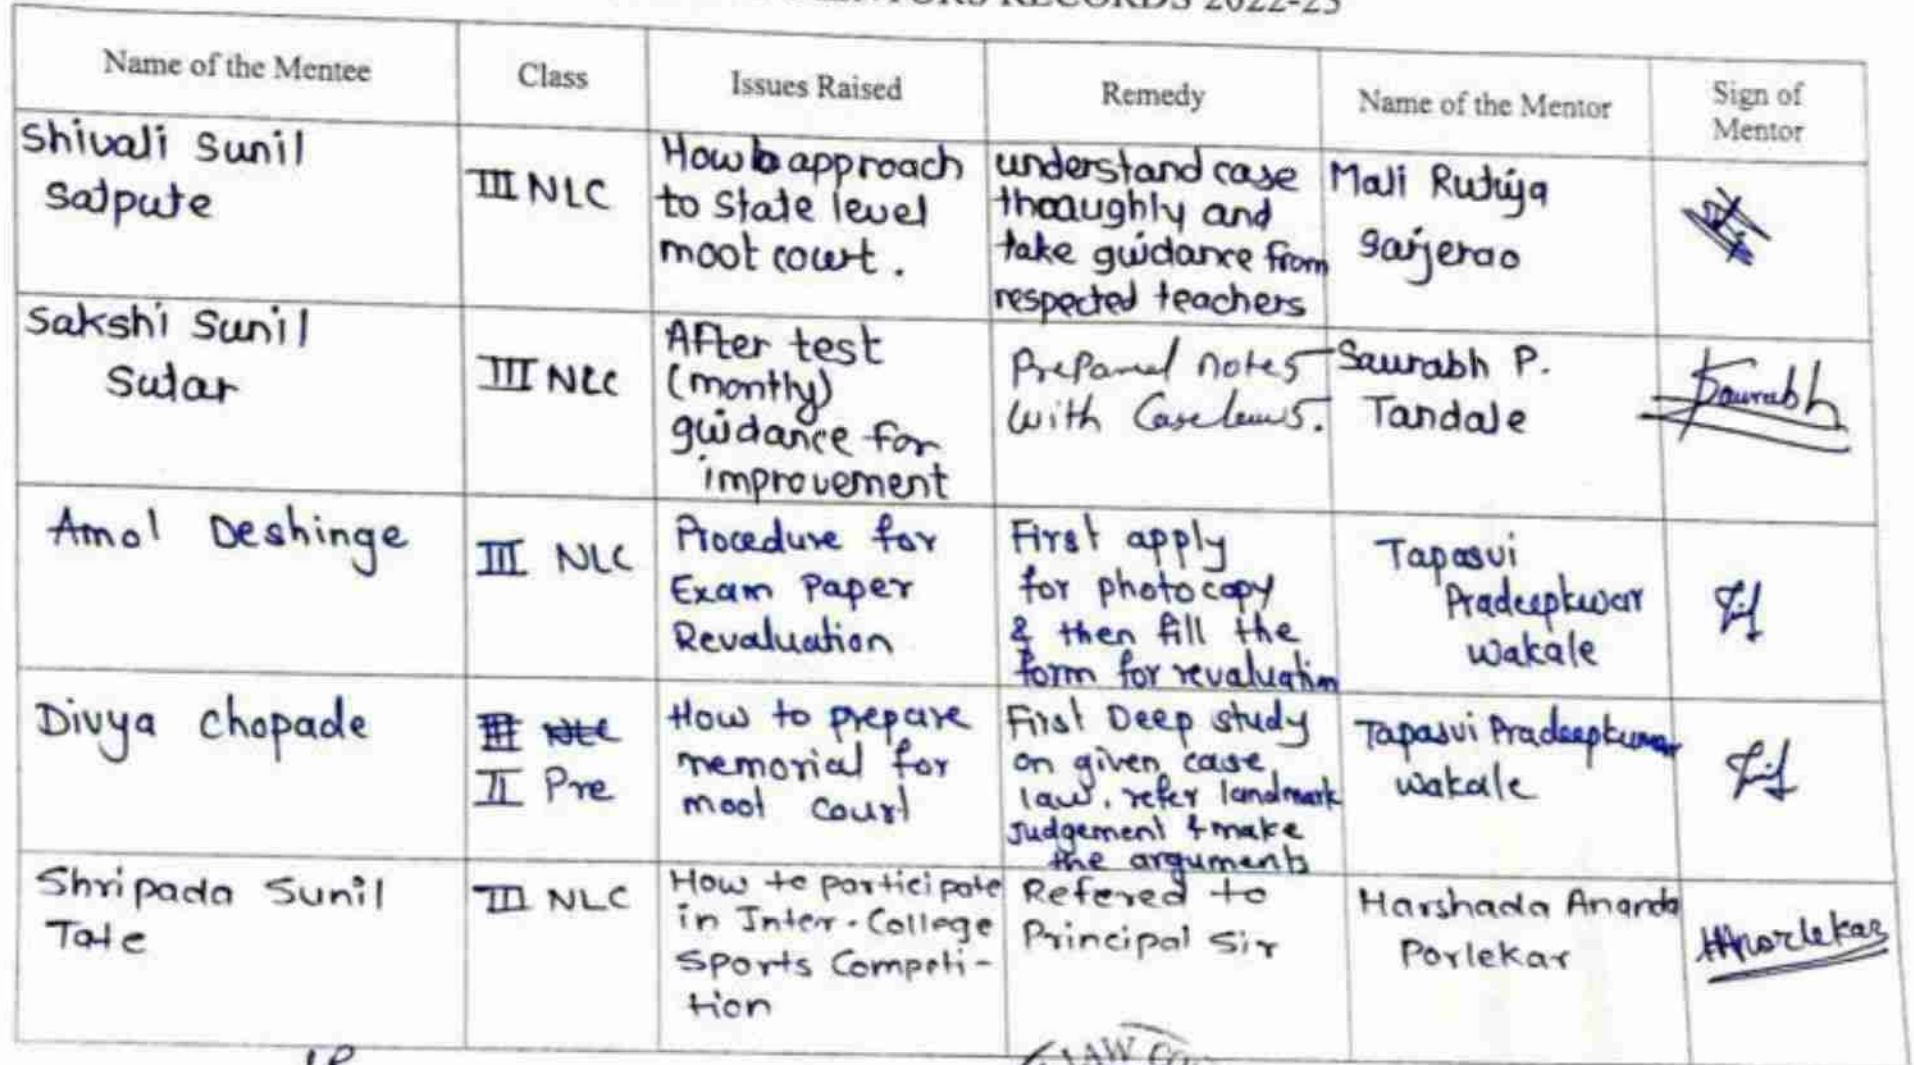 RECORDS 2022-23
Name of the Mentee
Class
Issues Raised
Remedy
Name of the Mentor
Sign of
Mentor
Shivali Sunil
Satpute
III NLC
How to approach
to State level
moot court.
understand case
thoaughly and
take guidance from
respected teachers
Mali Rutuja
Sarjerao
Sakshi Sunil
Sutar
III NLC
After test
(monthly)
guidance for
improvement
Prepared notes
with Caselaws.
Saurabh P.
Tandale
Saurabh
Amol Deshinge
III NLC
Procedure for
Exam Paper
Revaluation
First apply
for photocopy
& then fill the
form for revaluation
Tapasvi
Pradeepkumar
Wakale
Divya Chopade
III NLC
II Pre
How to prepare
memorial for
moot court
First Deep study
on given case
law, refer landmark
judgement & make
the arguments
Tapasvi Pradeepkumar
wakale
Shripada Sunil
Tate
III NLC
How to participate
in Inter-College
Sports Competi-
tion
Refered to
Principal Sir
Harshada Ananda
Porlekar
LAW CO